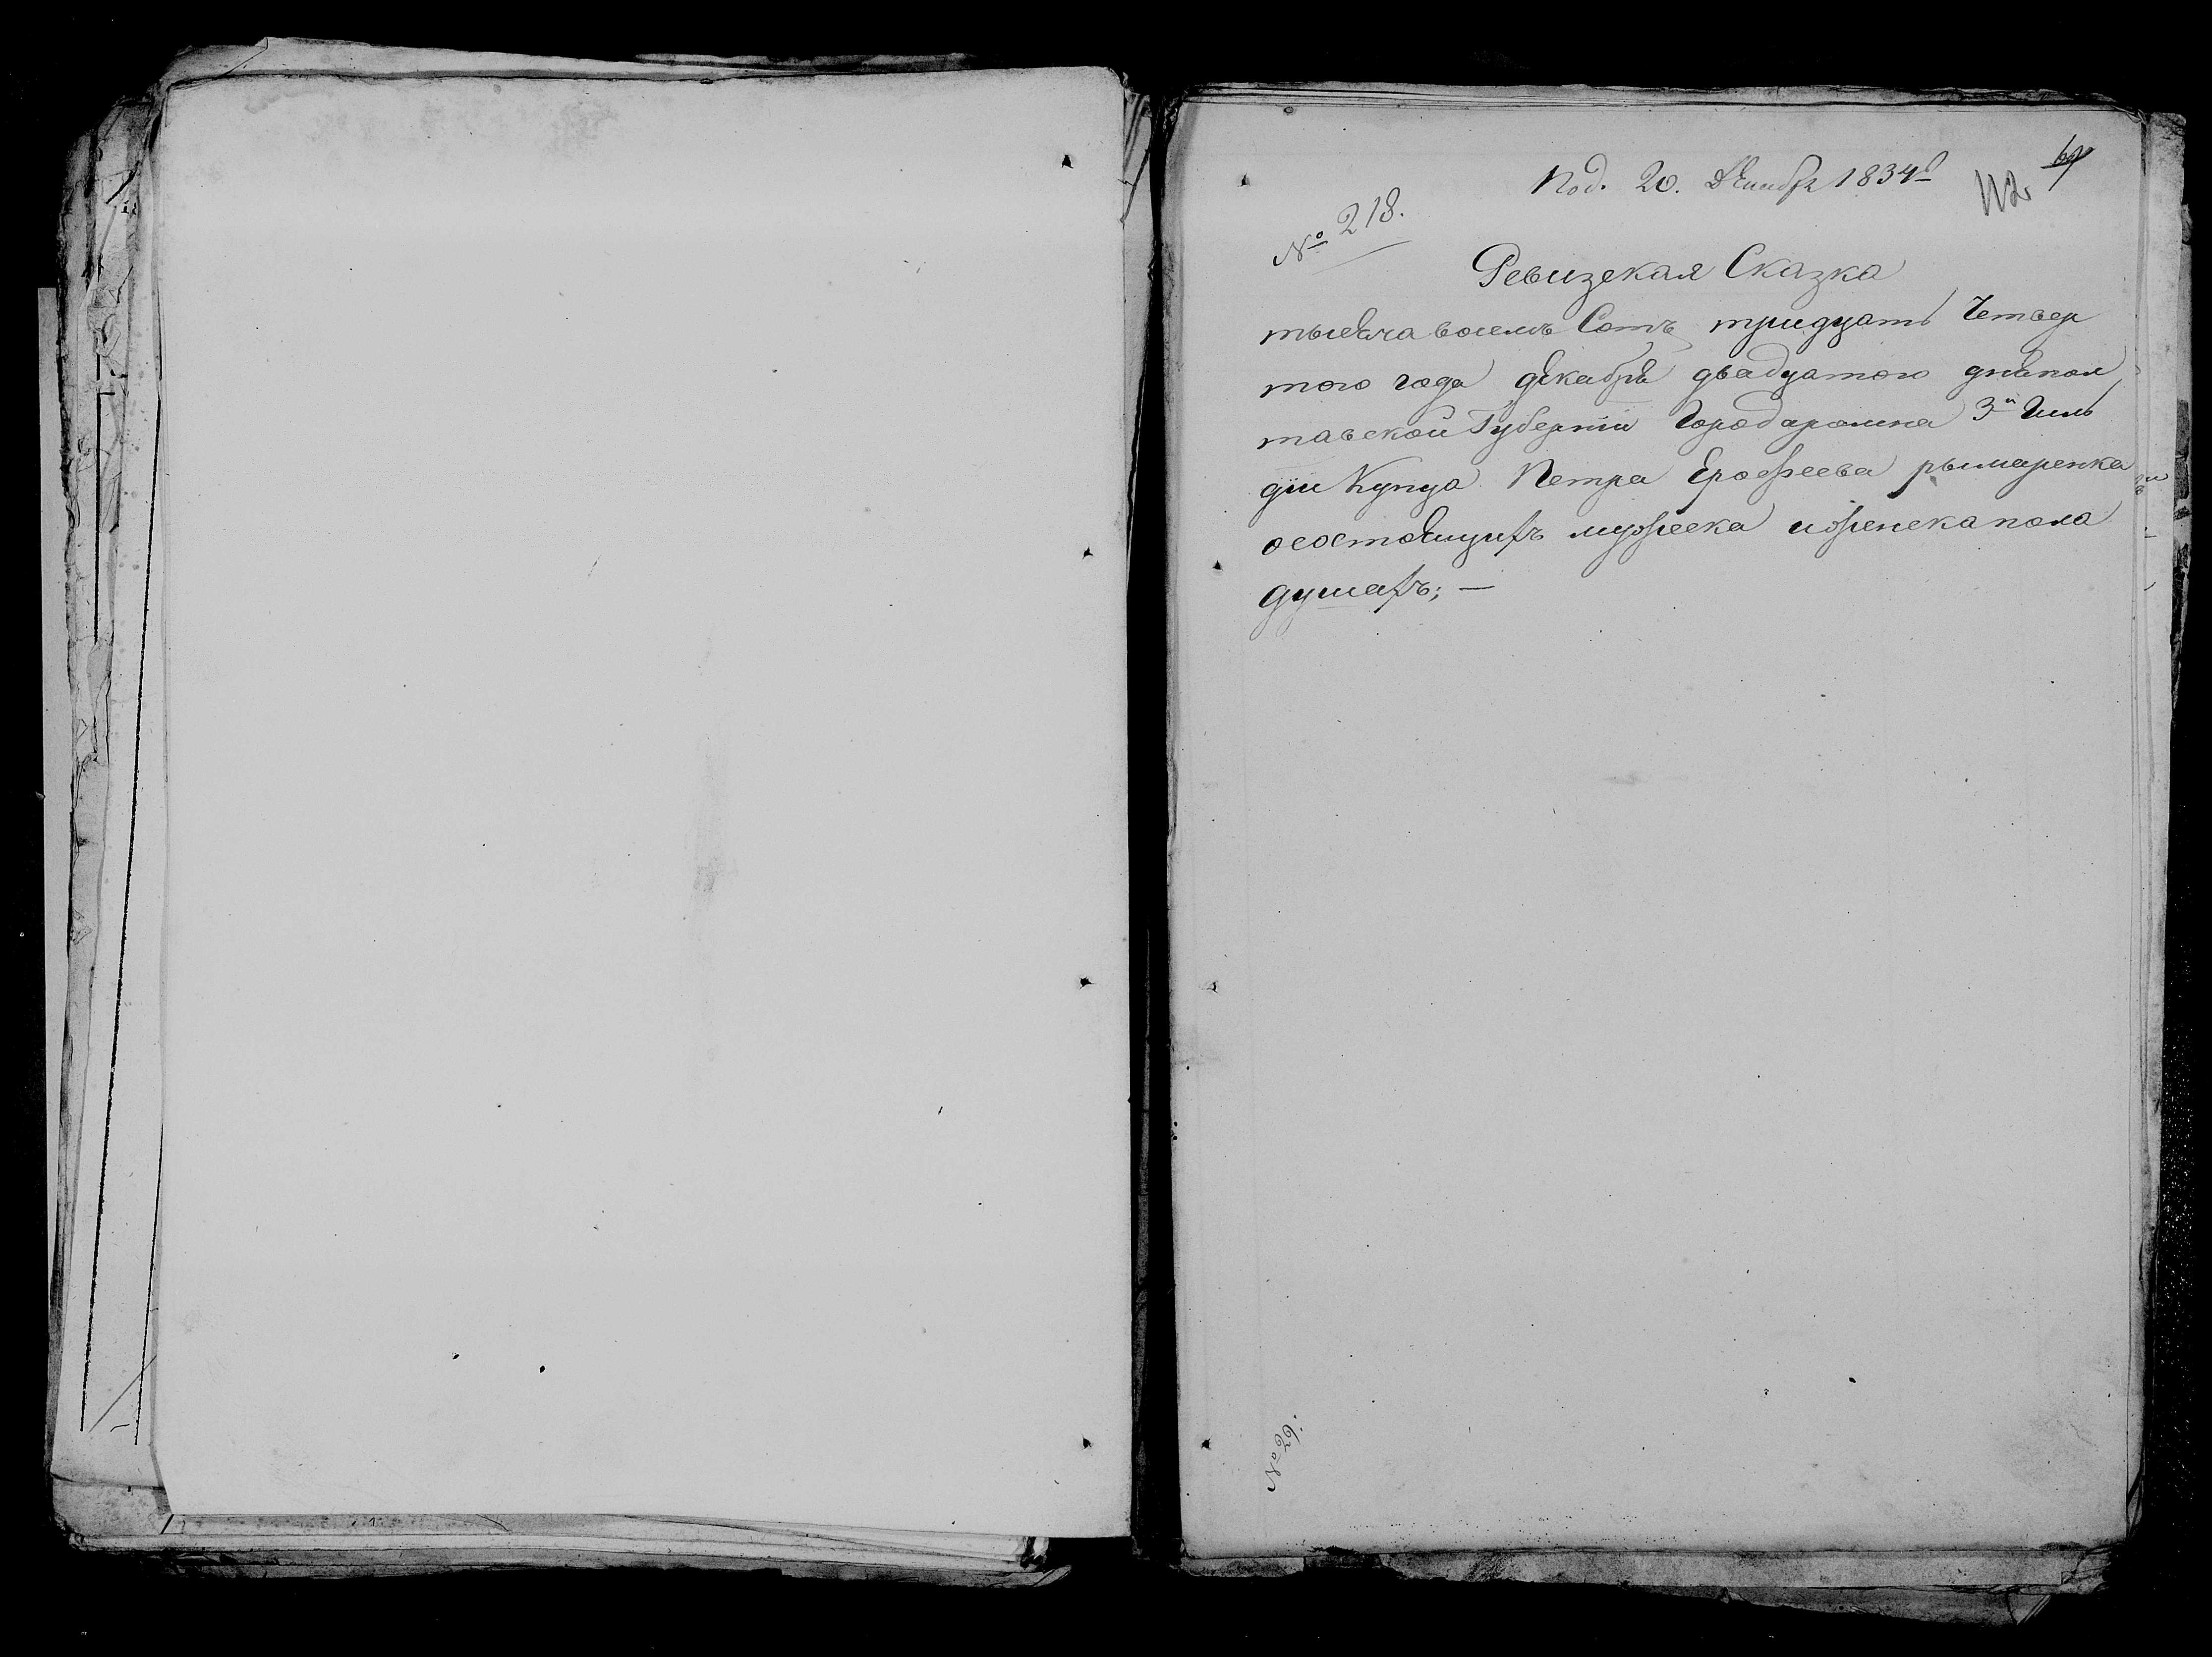 Под. 20. Декабря 1834 г
112
№ 218.
Ревизская Сказка
тысяча восемь Сотъ тридцать Четвер
того года декабря двадцатого дня пол
тавской Губернии Города ромна 3й Гиль
дии Купца Петра Ерофеева рымаренка
осостоящихъ мужеска иженска пола
душахъ; —
№ 29.